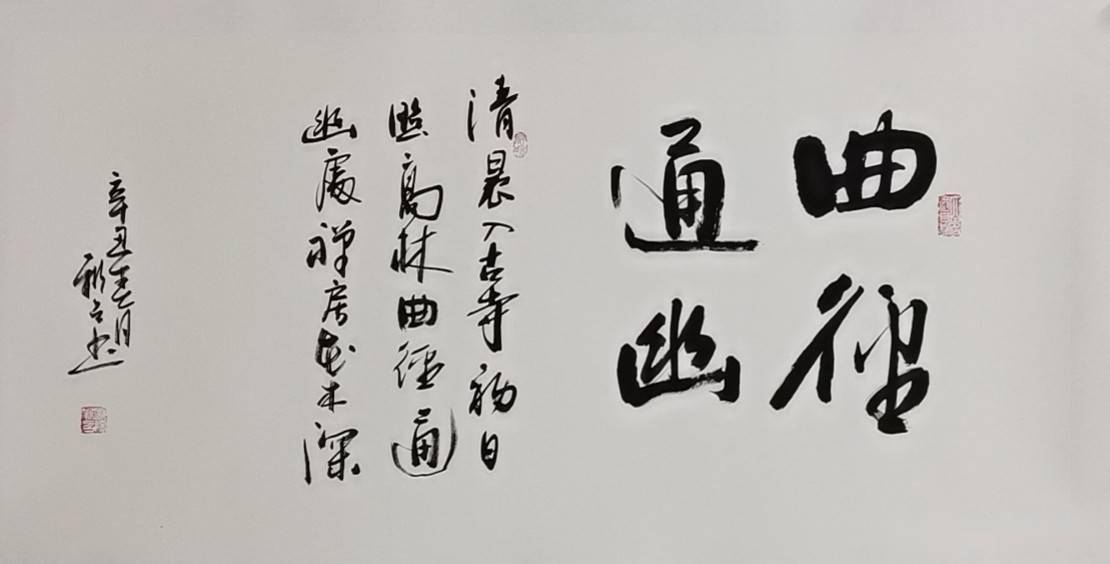 曲徑
通幽
清晨入古寺初日
照高林曲徑通
幽處禪房花木深
辛丑春月